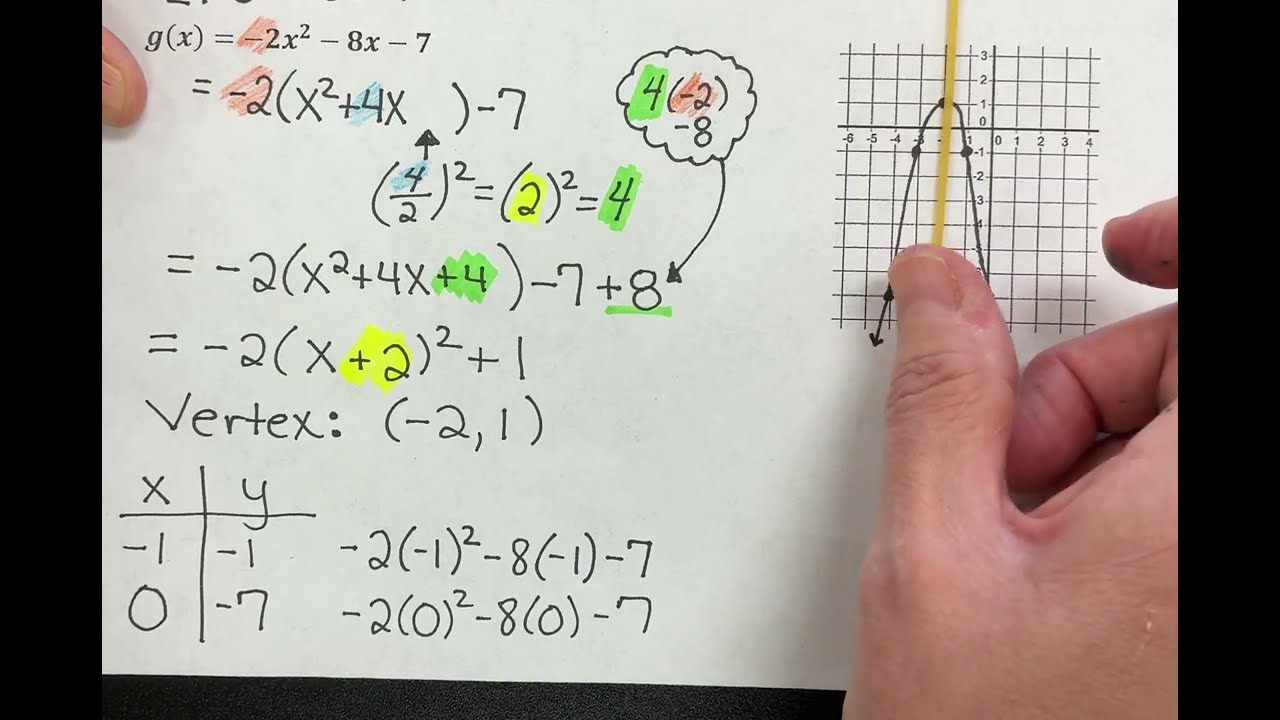 g(x) = −2x² − 8x − 7
= -2(x²+4x )-7
4(-2)
-8
(4/2)² = (2)² = 4
= -2(x²+4x+4 )-7+8
= -2(x+2)²+1
Vertex: (-2,1)
x | y
-1 | -1 -2(-1)²-8(-1)-7
0 | -7 -2(0)²-8(0)-7
3
2
1
0
-6 -5 -4 -3 1 0 1 2 3 4
-1
-2
-3
-4